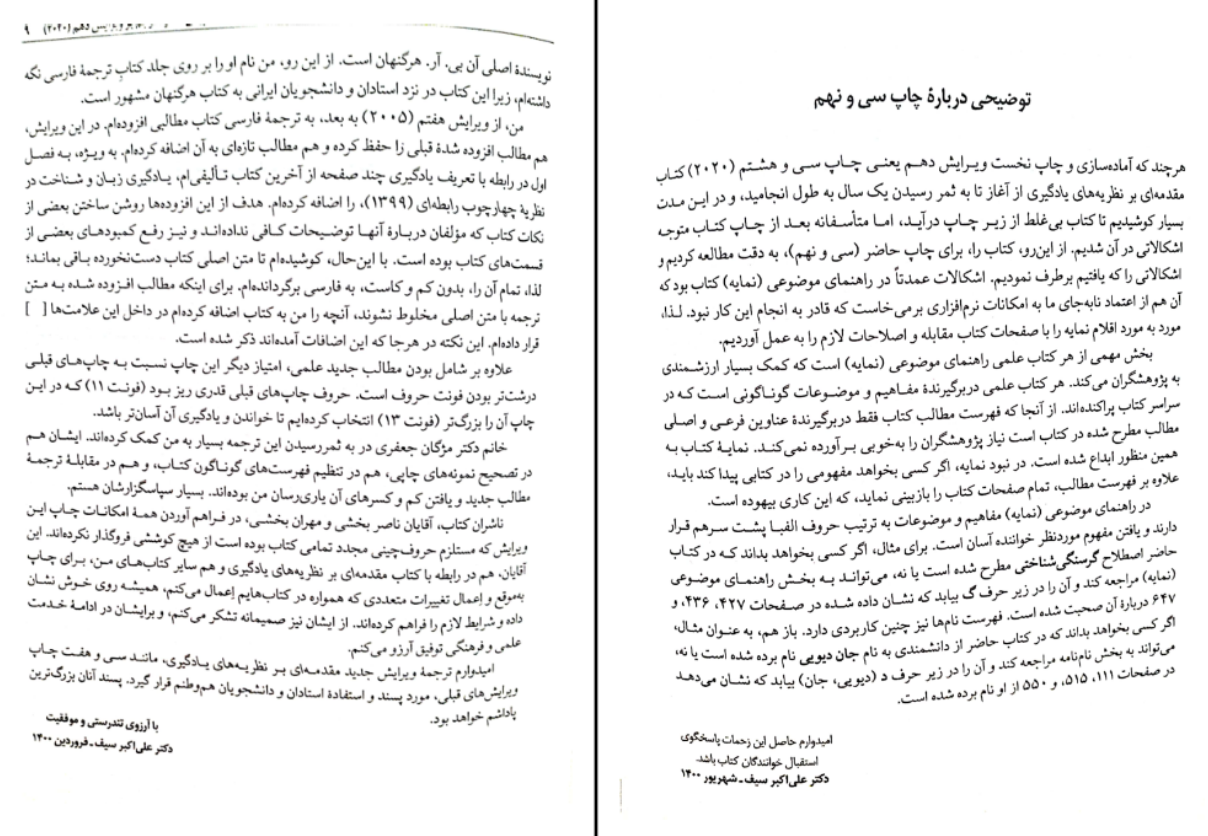 توضیحی دربارهٔ چاپ سی و نهم
هرچند که آماده‌سازی و چاپ نخست ویرایش دهم یعنی چاپ سی و هشتم (۲۰۲۰) کتاب
مقدمه‌ای بر نظریه‌های یادگیری از آغاز تا به ثمر رسیدن یک سال به طول انجامید، و در این مدت
بسیار کوشیدیم تا کتاب بی‌غلط از زیر چاپ درآید، اما متأسفانه بعد از چاپ کتاب متوجه
اشکالاتی در آن شدیم. از این‌رو، کتاب را، برای چاپ حاضر (سی و نهم)، به دقت مطالعه کردیم و
اشکالاتی را که یافتیم برطرف نمودیم. اشکالات عمدتاً در راهنمای موضوعی (نمایه) کتاب بود که
آن هم از اعتماد نابه‌جای ما به امکانات نرم‌افزاری برمی‌خاست که قادر به انجام این کار نبود. لذا،
مورد به مورد اقلام نمایه را با صفحات کتاب مقابله و اصلاحات لازم را به عمل آوردیم.
بخش مهمی از هر کتاب علمی راهنمای موضوعی (نمایه) است که کمک بسیار ارزشمندی
به پژوهشگران می‌کند. هر کتاب علمی دربرگیرندهٔ مفاهیم و موضوعات گوناگونی است که در
سراسر کتاب پراکنده‌اند. از آنجا که فهرست مطالب کتاب فقط دربرگیرندهٔ عناوین فرعی و اصلی
مطالب مطرح شده در کتاب است نیاز پژوهشگران را به‌خوبی برآورده نمی‌کند. نمایهٔ کتاب به
همین منظور ابداع شده است. در نبود نمایه، اگر کسی بخواهد مفهومی را در کتابی پیدا کند باید،
علاوه بر فهرست مطالب، تمام صفحات کتاب را بازبینی نماید، که این کاری بیهوده است.
در راهنمای موضوعی (نمایه) مفاهیم و موضوعات به ترتیب حروف الفبا پشت سرهم قرار
دارند و یافتن مفهوم موردنظر خواننده آسان است. برای مثال، اگر کسی بخواهد بداند که در کتاب
حاضر اصطلاح گرسنگی‌شناختی مطرح شده است یا نه، می‌تواند به بخش راهنمای موضوعی
(نمایه) مراجعه کند و آن را در زیر حرف گ بیابد که نشان داده شده در صفحات ۴۲۷، ۴۳۶، و
۶۴۷ دربارهٔ آن صحبت شده است. فهرست نام‌ها نیز چنین کاربردی دارد. باز هم، به عنوان مثال،
اگر کسی بخواهد بداند که در کتاب حاضر از دانشمندی به نام جان دیویی نام برده شده است یا نه،
می‌تواند به بخش نام‌نامه مراجعه کند و آن را در زیر حرف د (دیویی، جان) بیابد که نشان می‌دهد
در صفحات ۱۱۱، ۵۱۵، و ۵۵۰ از او نام برده شده است.
امیدوارم حاصل این زحمات پاسخگوی
استقبال خوانندگان کتاب باشد.
دکتر علی‌اکبر سیف ـ شهریور ۱۴۰۰
ویرایش دهم (۲۰۲۰) ۹
نویسندهٔ اصلی آن بی. آر. هرگنهان است. از این رو، من نام او را بر روی جلد کتاب ترجمهٔ فارسی نگه
داشته‌ام، زیرا این کتاب در نزد استادان و دانشجویان ایرانی به کتاب هرگنهان مشهور است.
من، از ویرایش هفتم (۲۰۰۵) به بعد، به ترجمهٔ فارسی کتاب مطالبی افزوده‌ام. در این ویرایش،
هم مطالب افزوده شدهٔ قبلی را حفظ کرده و هم مطالب تازه‌ای به آن اضافه کرده‌ام. به ویژه، به فصل
اول در رابطه با تعریف یادگیری چند صفحه از آخرین کتاب تألیفی‌ام، یادگیری زبان و شناخت در
نظریهٔ چهارچوب رابطه‌ای (۱۳۹۹)، را اضافه کرده‌ام. هدف از این افزوده‌ها روشن ساختن بعضی از
نکات کتاب که مؤلفان دربارهٔ آنها توضیحات کافی نداده‌اند و نیز رفع کمبودهای بعضی از
قسمت‌های کتاب بوده است. با این‌حال، کوشیده‌ام تا متن اصلی کتاب دست‌نخورده باقی بماند؛
لذا، تمام آن را، بدون کم و کاست، به فارسی برگردانده‌ام. برای اینکه مطالب افزوده شده به متن
ترجمه با متن اصلی مخلوط نشوند، آنچه را من به کتاب اضافه کرده‌ام در داخل این علامت‌ها [ ]
قرار داده‌ام. این نکته در هرجا که این اضافات آمده‌اند ذکر شده است.
علاوه بر شامل بودن مطالب جدید علمی، امتیاز دیگر این چاپ نسبت به چاپ‌های قبلی
درشت‌تر بودن فونت حروف است. حروف چاپ‌های قبلی قدری ریز بود (فونت ۱۱) که در این
چاپ آن را بزرگ‌تر (فونت ۱۳) انتخاب کرده‌ایم تا خواندن و یادگیری آن آسان‌تر باشد.
خانم دکتر مژگان جعفری در به ثمررسیدن این ترجمه بسیار به من کمک کرده‌اند. ایشان هم
در تصحیح نمونه‌های چاپی، هم در تنظیم فهرست‌های گوناگون کتاب، و هم در مقابلهٔ ترجمهٔ
مطالب جدید و یافتن کم و کسرهای آن یاری‌رسان من بوده‌اند. بسیار سپاسگزارشان هستم.
ناشران کتاب، آقایان ناصر بخشی و مهران بخشی، در فراهم آوردن همهٔ امکانات چاپ این
ویرایش که مستلزم حروف‌چینی مجدد تمامی کتاب بوده است از هیچ کوششی فروگذار نکرده‌اند. این
آقایان، هم در رابطه با کتاب مقدمه‌ای بر نظریه‌های یادگیری و هم سایر کتاب‌های من، برای چاپ
به‌موقع و اِعمال تغییرات متعددی که همواره در کتاب‌هایم اِعمال می‌کنم، همیشه روی خوش نشان
داده و شرایط لازم را فراهم کرده‌اند. از ایشان نیز صمیمانه تشکر می‌کنم، و برایشان در ادامهٔ خدمت
علمی و فرهنگی توفیق آرزو می‌کنم.
امیدوارم ترجمهٔ ویرایش جدید مقدمه‌ای بر نظریه‌های یادگیری، مانند سی و هفت چاپ
ویرایش‌های قبلی، مورد پسند و استفادهٔ استادان و دانشجویان هم‌وطنم قرار گیرد. پسند آنان بزرگ‌ترین
پاداشم خواهد بود.
با آرزوی تندرستی و موفقیت
دکتر علی‌اکبر سیف ـ فروردین ۱۴۰۰